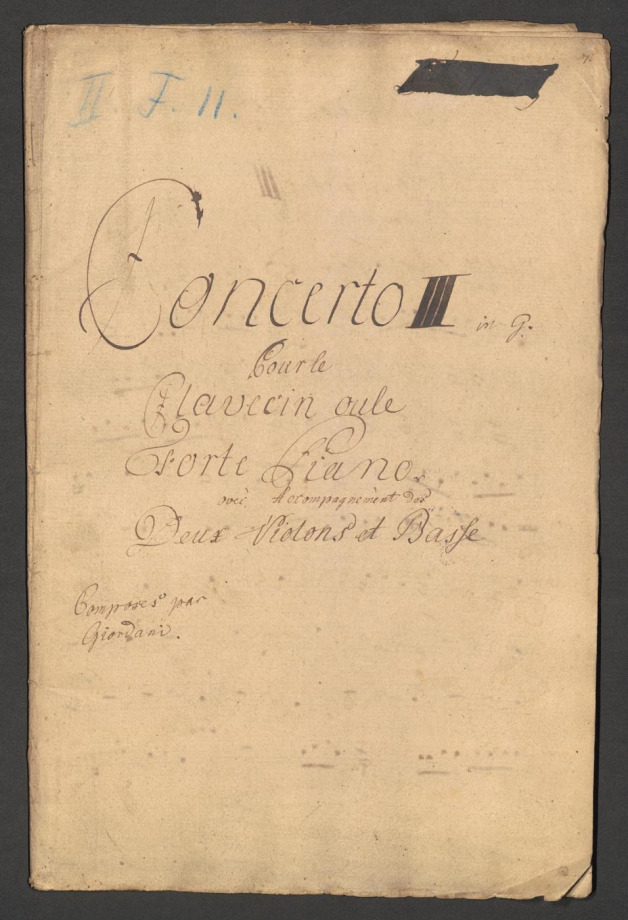 II J. 11.
Concerto III in G.
Pour le
Clavecin oule
Forte Piano.
avec Accompagnement des
Deux Violons et Basse
Composes par
Giordani.